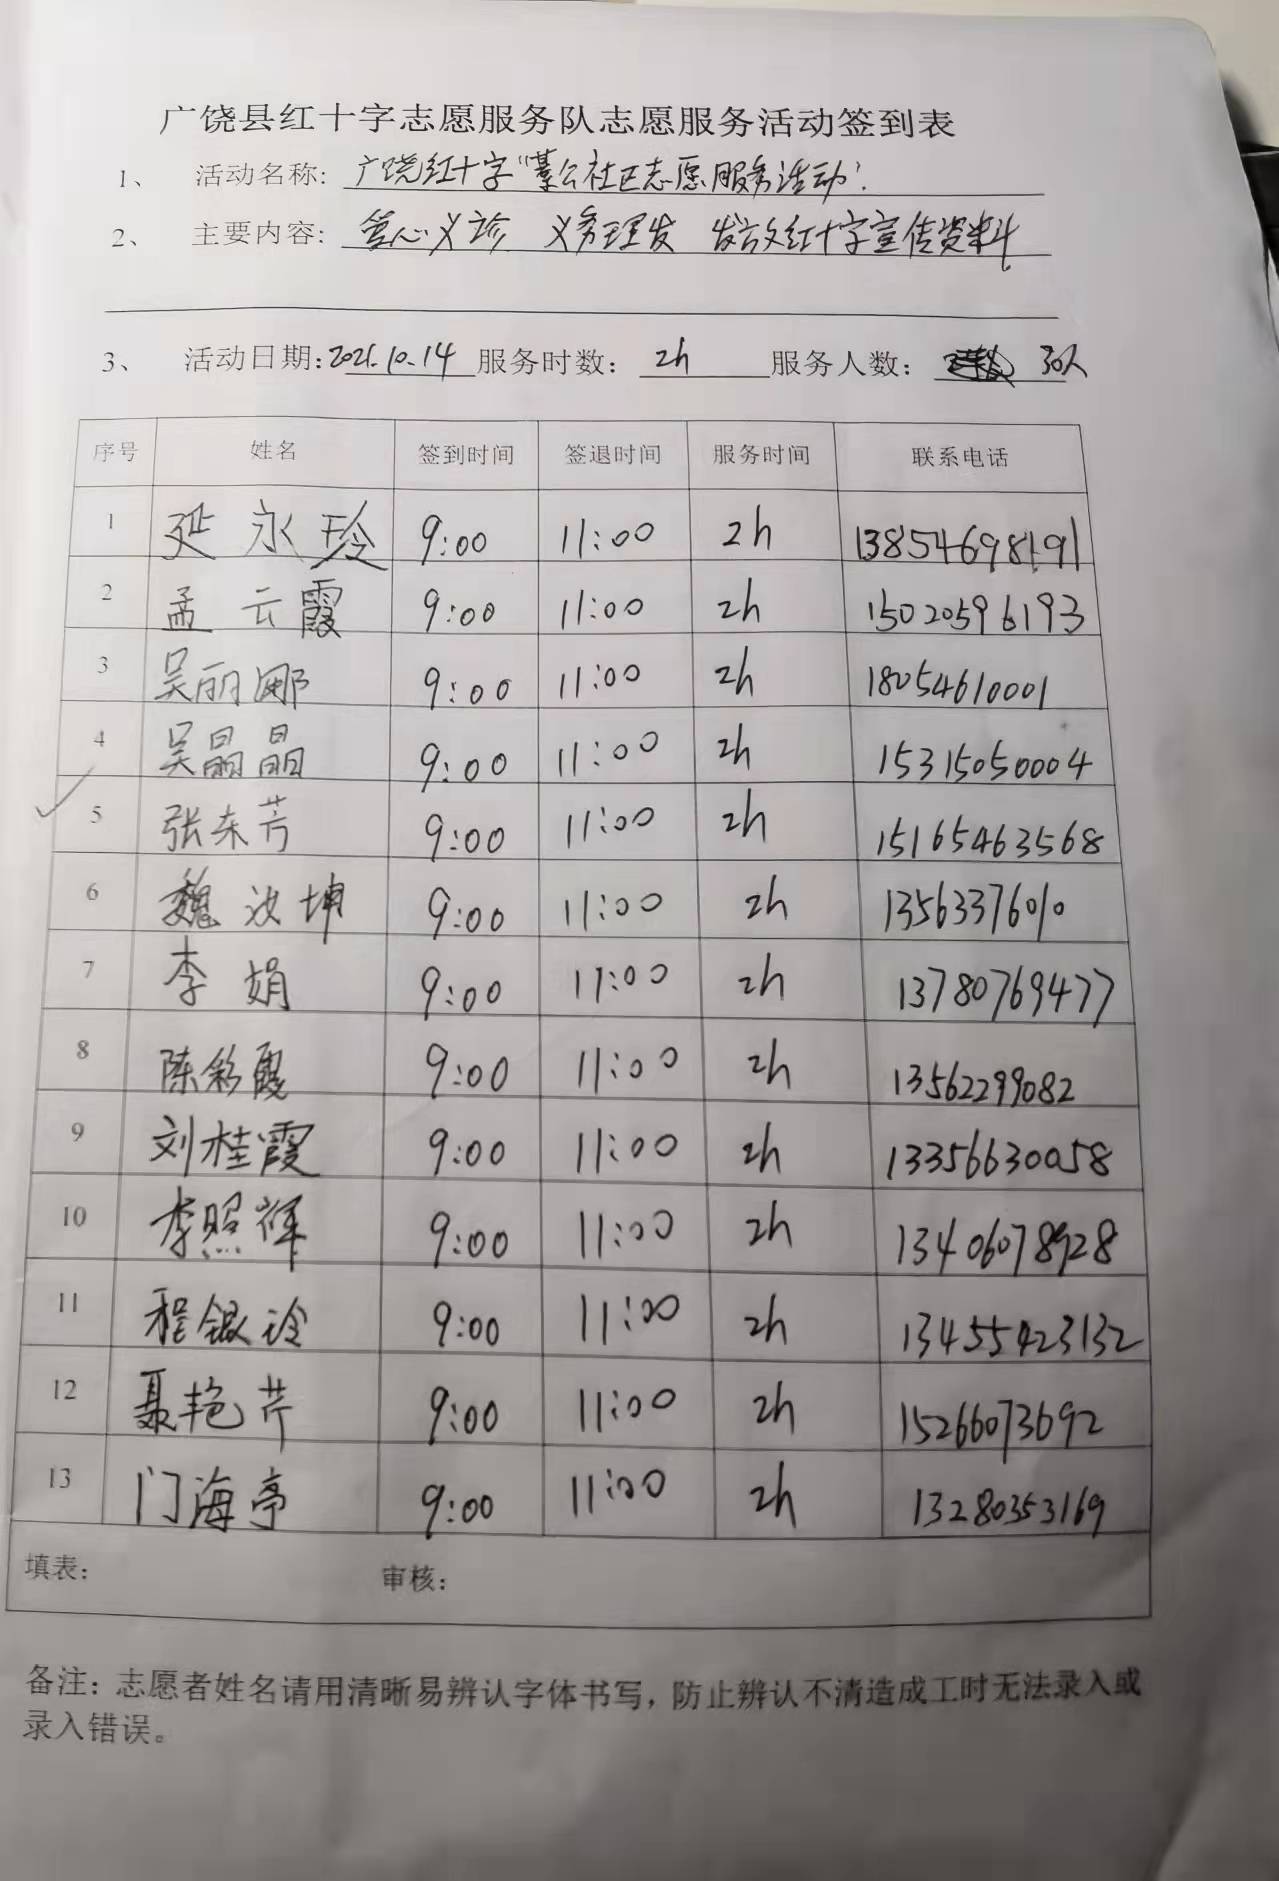 广饶县红十字志愿服务队志愿服务活动签到表
1、 活动名称: 广饶红十字“綦公社区志愿服务活动”.
2、 主要内容: 爱心义诊 义务理发 发放红十字宣传资料
3、 活动日期: 2021.10.14 服务时数: 2h 服务人数: 30人
序号 姓名 签到时间 签退时间 服务时间 联系电话
1 延永玲 9:00 11:00 2h 13854698191
2 孟云霞 9:00 11:00 2h 15020596193
3 吴丽娜 9:00 11:00 2h 18054610001
4 吴晶晶 9:00 11:00 2h 15315050004
5 张东芳 9:00 11:00 2h 15165463568
6 魏汝坤 9:00 11:00 2h 13563376010
7 李娟 9:00 11:00 2h 13780769477
8 陈彩霞 9:00 11:00 2h 13562299082
9 刘桂霞 9:00 11:00 2h 13356630058
10 李照辉 9:00 11:00 2h 13406078928
11 程银玲 9:00 11:00 2h 13455423132
12 聂艳芹 9:00 11:00 2h 15266073692
13 门海亭 9:00 11:00 2h 13280353169
填表: 审核:
备注: 志愿者姓名请用清晰易辨认字体书写，防止辨认不清造成工时无法录入或
录入错误。